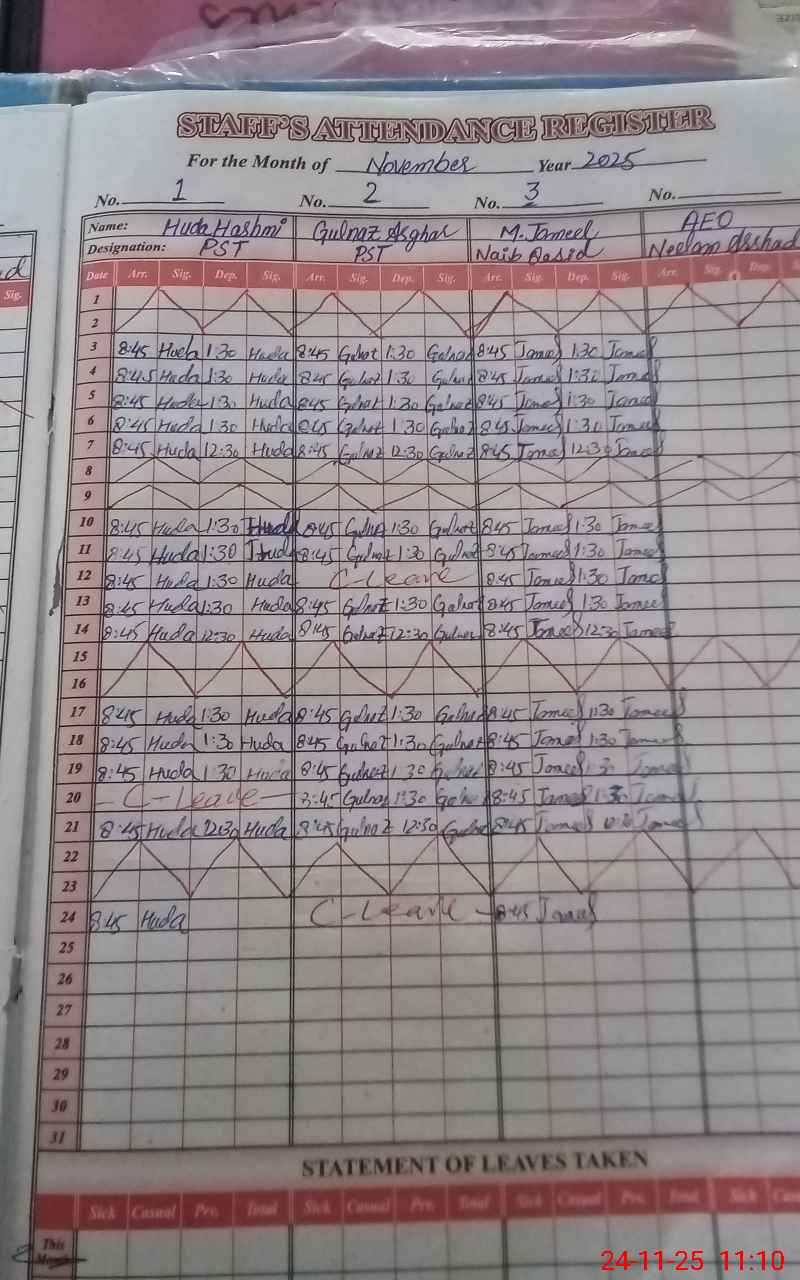 STAFF'S ATTENDANCE REGISTER
For the Month of November Year 2025
No. 1 No. 2 No. 3 No.
Name: Huda Hashmi Gulnaz Asghar M. Jameel AEO
Designation: PST PST Naib Qasid Neelam Arshad
Sig. Date Arr. Sig. Dep. Sig. Arr. Sig. Dep. Sig. Arr. Sig. Dep. Sig. Arr. Sig. Dep.
1
2
3 8:45 Huda 1:30 Huda 8:45 1:30 8:45 Jameel 1:30 Jameel
4 8:45 Huda 1:30 Huda 8:45 1:30 8:45 Jameel 1:30 Jameel
5 8:45 Huda 1:30 Huda 8:45 1:30 8:45 Jameel 1:30 Jameel
6 8:45 Huda 1:30 Huda 8:45 1:30 Gulnaz 8:45 Jameel 1:30 Jameel
7 8:45 Huda 12:30 Huda 8:45 Gulnaz 12:30 Gulnaz 8:45 Jameel 12:30 Jameel
8
9
10 8:45 Huda 1:30 Huda 8:45 Gulnaz 1:30 Gulnaz 8:45 Jameel 1:30 Jameel
11 8:45 Huda 1:30 Huda 8:45 Gulnaz 1:30 Gulnaz 8:45 Jameel 1:30 Jameel
12 8:45 Huda 1:30 Huda C-Leave 8:45 Jameel 1:30 Jameel
13 8:45 Huda 1:30 Huda 8:45 Gulnaz 1:30 Gulnaz 8:45 Jameel 1:30 Jameel
14 8:45 Huda 12:30 Huda 8:45 Gulnaz 12:30 Gulnaz 8:45 Jameel 12:30 Jameel
15
16
17 8:45 Huda 1:30 Huda 8:45 Gulnaz 1:30 Gulnaz 8:45 Jameel 1:30 Jameel
18 8:45 Huda 1:30 Huda 8:45 Gulnaz 1:30 Gulnaz 8:45 Jameel 1:30 Jameel
19 8:45 Huda 1:30 Huda 8:45 Gulnaz 1:30 8:45 Jameel Jameel
20 - C-Leave - 8:45 Gulnaz 1:30 8:45 Jameel Jameel
21 8:45 Huda 12:30 Huda 8:45 Gulnaz 12:30 Gulnaz 8:45 Jameel Jameel
22
23
24 8:45 Huda C-Leave - 8:45 Jameel
25
26
27
28
29
30
31
STATEMENT OF LEAVES TAKEN
Sick Casual Prv. Total Sick Casual Prv. Total Sick Casual Prv. Total Sick
This Month
24-11-25 11:10